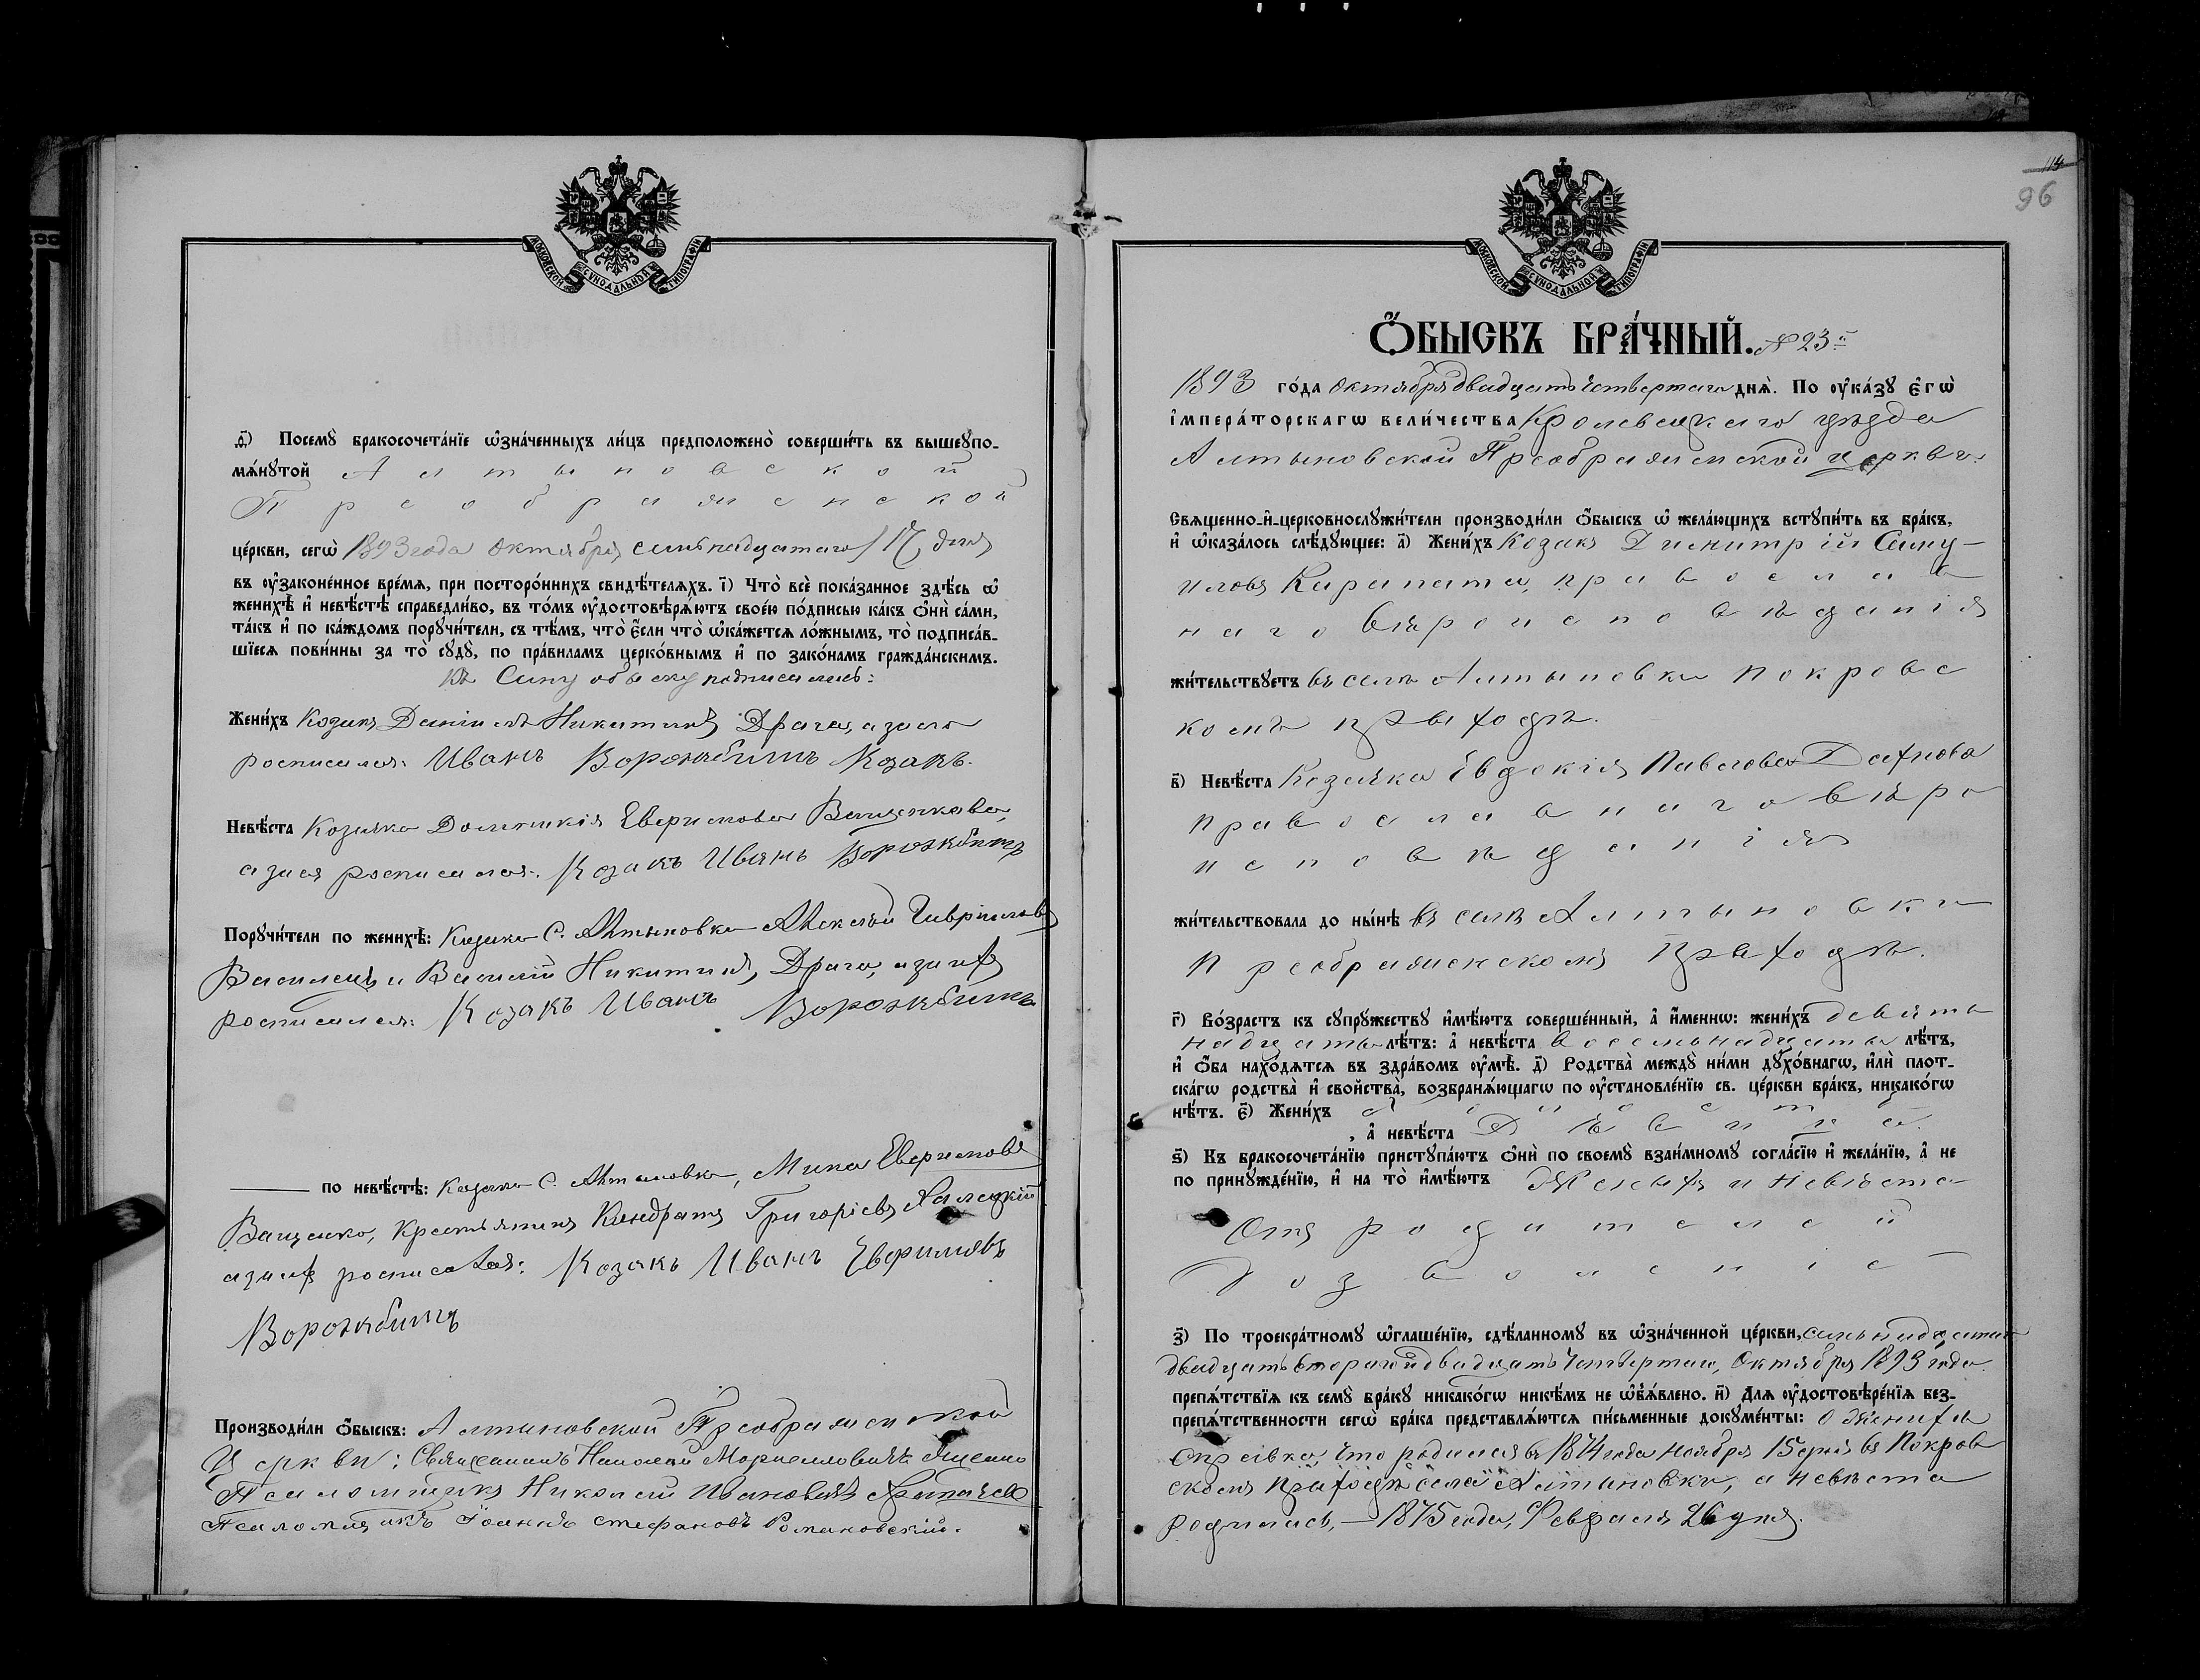 МОСКОВСКОЙ СУНОДАЛЬНОЙ ТИПОГРАФІИ
ѳ҃) Посемꙋ̀ бракосочета́нїе ѡ҆зна́ченныхъ ли́цъ предположено̀ соверши́ть въ вышеꙋпо-
мѧ́нꙋтой Алтыновской
Преображенской
це́ркви, сегѡ̀ 1893 года Октября семьнадцатаго / 17 дня
въ ᲂу҆законе́нное вре́мѧ, при посторо́ннихъ свидѣ́телѧхъ. і҃) Что̀ всѐ пока́занное здѣ́сь ѡ҆
женихѣ̀ и҆ невѣ́стѣ справедли́во, въ то́мъ ᲂу҆достовѣрѧ́ютъ свое́ю по́дписью ка́къ ѻ҆нѝ са́ми,
та́къ и҆ по ка́ждомъ порꙋчи́тели, съ тѣ́мъ, что̀ є҆́сли что̀ ѡ҆ка́жетсѧ ло́жнымъ, то̀ подписа́в-
шїесѧ пови́нны за то̀ сꙋдꙋ̀, по пра́виламъ церко́внымъ и҆ по зако́намъ гражда́нскимъ.
Къ Сему обыску подписались:
Жени́хъ Козакъ Даніилъ Никитинъ Драга, а за него
росписался: Иванъ Ворожбитъ Козакъ.
Невѣ́ста Козачка Домникія Евфимова Ващенкова,
а за ея росписался: Козакъ Иванъ Ворожбитъ
Порꙋчи́тели по женихѣ̀: Козаки С. Алтыновки Алексѣй Гавриловъ
Василецъ и Василій Никитинъ Драга, а за ихъ
росписался: Козакъ Иванъ Ворожбитъ
по невѣ́стѣ: Козаки С. Алтыновки, Мина Евфимовъ
Ващенко, Крестьянинъ Кондратъ Григоріевъ
а за ихъ росписался: Козакъ Иванъ Евфимовъ
Ворожбитъ
Производи́ли ѻ҆́быскъ: Алтыновской Преображенской
Церкви: Священникъ Николай
Псаломщикъ Николай Ивановичъ
Псаломщикъ Іоаннъ Стефановъ Романовскій.
114
96
МОСКОВСКОЙ СУНОДАЛЬНОЙ ТИПОГРАФІИ
Ѻ҆́БЫСКЪ БРА́ЧНЫЙ. № 23й
1893 го́да Октября двадцать четвертаго днѧ̀. По ᲂу҆ка́зꙋ є҆гѡ̀
і҆мпера́торскагѡ вели́чества Кролевецкаго уезда
Алтыновской Преображенской церкви.
Свѧщенно-и҆-церковнослꙋжи́тели производи́ли ѻ҆́быскъ ѡ҆ жела́ющихъ встꙋпи́ть въ бра́къ,
и҆ ѡ҆каза́лось слѣ́дꙋющее: а҃) Жени́хъ Козакъ Димитрій Саму-
иловъ Карапата, православ
наго вѣроисповѣданія
жи́тельствꙋетъ въ селѣ Алтыновки Покровс
комъ приходѣ.
в҃) Невѣ́ста Козачка Евдокія Павлова Дахнова
православнаго вѣро
исповѣданія
жи́тельствовала до ны́нѣ въ селѣ Алтыновки
Преображенскомъ приходѣ.
г҃) Во́зрастъ къ сꙋпрꙋ́жествꙋ и҆мѣ́ютъ соверше́нный, а҆ и҆́меннѡ: жени́хъ девять
надцать лѣ́тъ: а҆ невѣ́ста восемьнадцать лѣ́тъ,
и҆ ѻ҆́ба нахо́дѧтсѧ въ здра́вомъ ᲂу҆мѣ̀. д҃) Родства̀ междꙋ̀ ни́ми дꙋхо́внагѡ, и҆лѝ плот-
ска́гѡ родства̀ и҆ сво́йства, возбранѧ́ющагѡ по ᲂу҆становле́нїю св. це́ркви бра́къ, никако́гѡ
нѣ́тъ. є҃) Жени́хъ холостъ
, а҆ невѣ́ста Дѣвица.
ѕ҃) Къ бракосочета́нїю пристꙋпа́ютъ ѻ҆нѝ по своемꙋ̀ взаи́мномꙋ согла́сїю и҆ жела́нїю, а҆ не
по принꙋжде́нїю, и҆ на то̀ и҆мѣ́ютъ Женихъ и Невѣста
Отъ родителей
Дозволеніе
з҃) По троекра́тномꙋ ѡ҆глаше́нїю, сдѣ́ланномꙋ въ ѡ҆зна́ченной це́ркви, семьнадцатаго
двадцать втораго и двадцать четвертаго, Октября 1893 года
препѧ́тствїѧ къ семꙋ̀ бра́кꙋ никако́гѡ никѣ́мъ не ѡ҆б̾ѧ́влено. и҃) Длѧ ᲂу҆достовѣре́нїѧ без-
препѧ́тственности сегѡ̀ бра́ка представлѧ́ютсѧ пи́сьменные докꙋме́нты: О женихѣ
справка, что родился въ 1874 года Ноября 15 дня въ Покров
скомъ приходѣ села Алтыновки, а невѣста
родилась, — 1875 года, Февраля 26 дня.